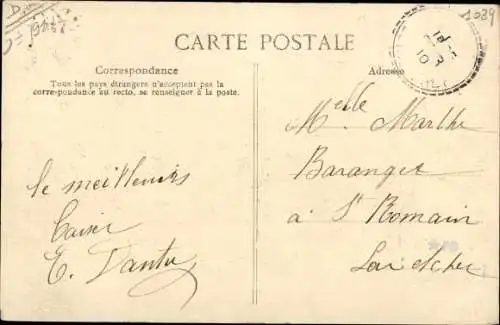 1039
CARTE POSTALE
Correspondance
Adresse
Tous les pays étrangers n'acceptent pas la
correspondance au recto, se renseigner à la poste.
Melle Marthe
Baranger
à St Romain
Loir et Cher
le meilleurs
baiser
E.